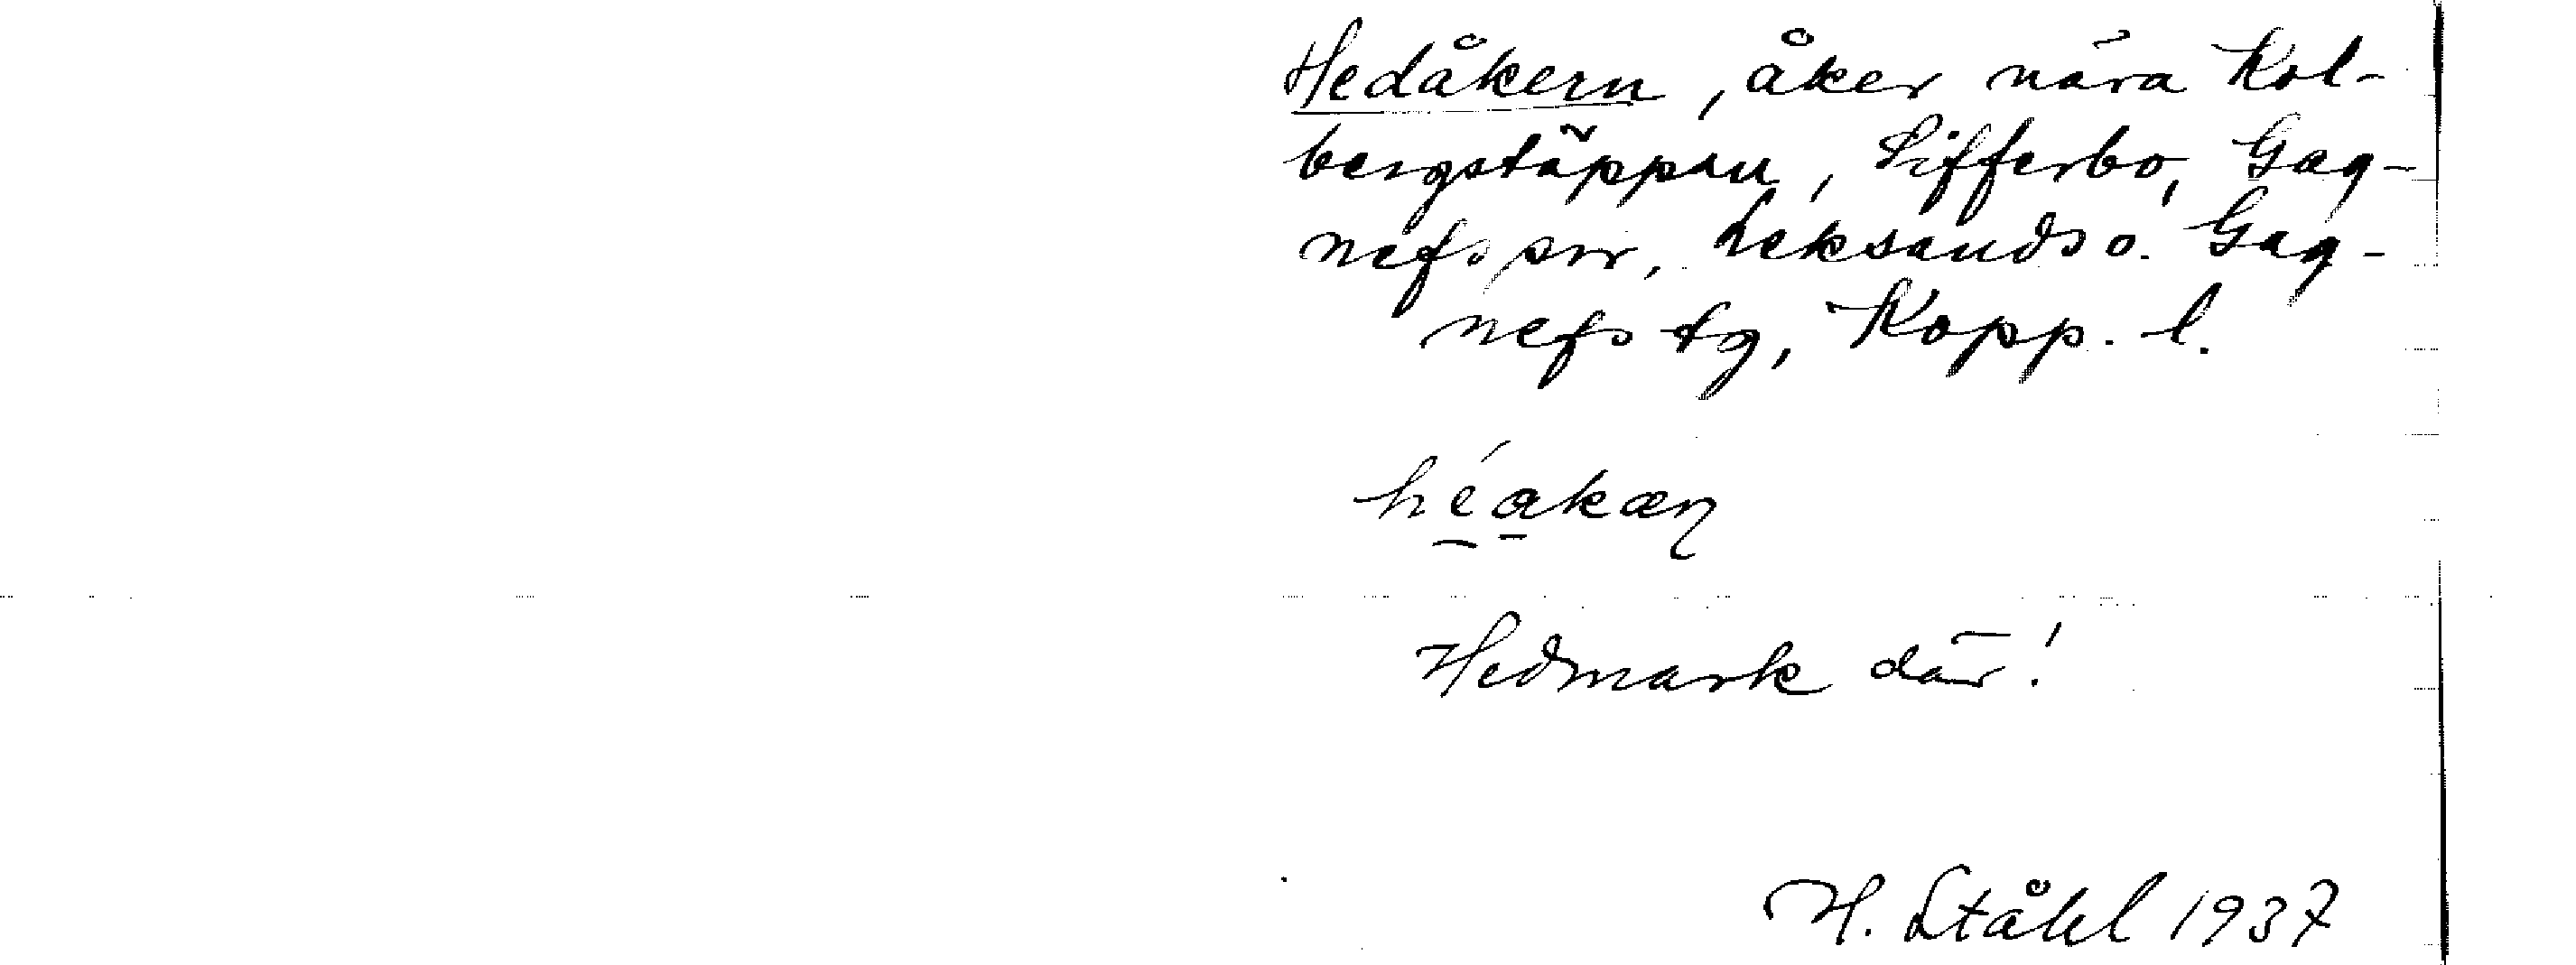 Hedåkern, åker nära Kol-
bergstäppan, Sifferbo, Gag-
nefs sn, Leksands o. Gag-
nefs tg, Kopp. l.
héakæn
Hedmark där!
H. Ståhl 1937